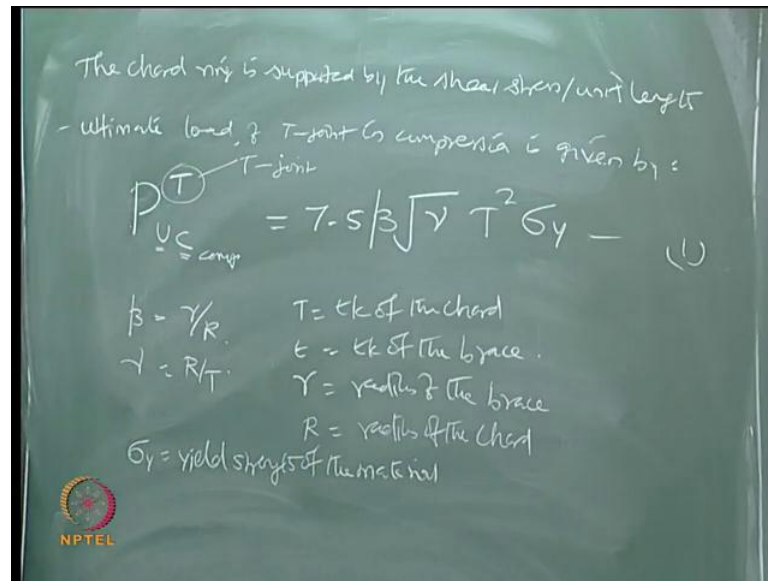 The chord ring is supported by the shear stress/unit length
- Ultimate load of T-joint in compression is given by:
P^T_UC = 7.5 β √γ T² σy — (1)
T-joint
comp
β = r/R.
γ = R/T.
T = tk of the chord
t = tk of the brace.
r = radius of the brace
R = radius of the chord
σy = yield strength of the material
NPTEL